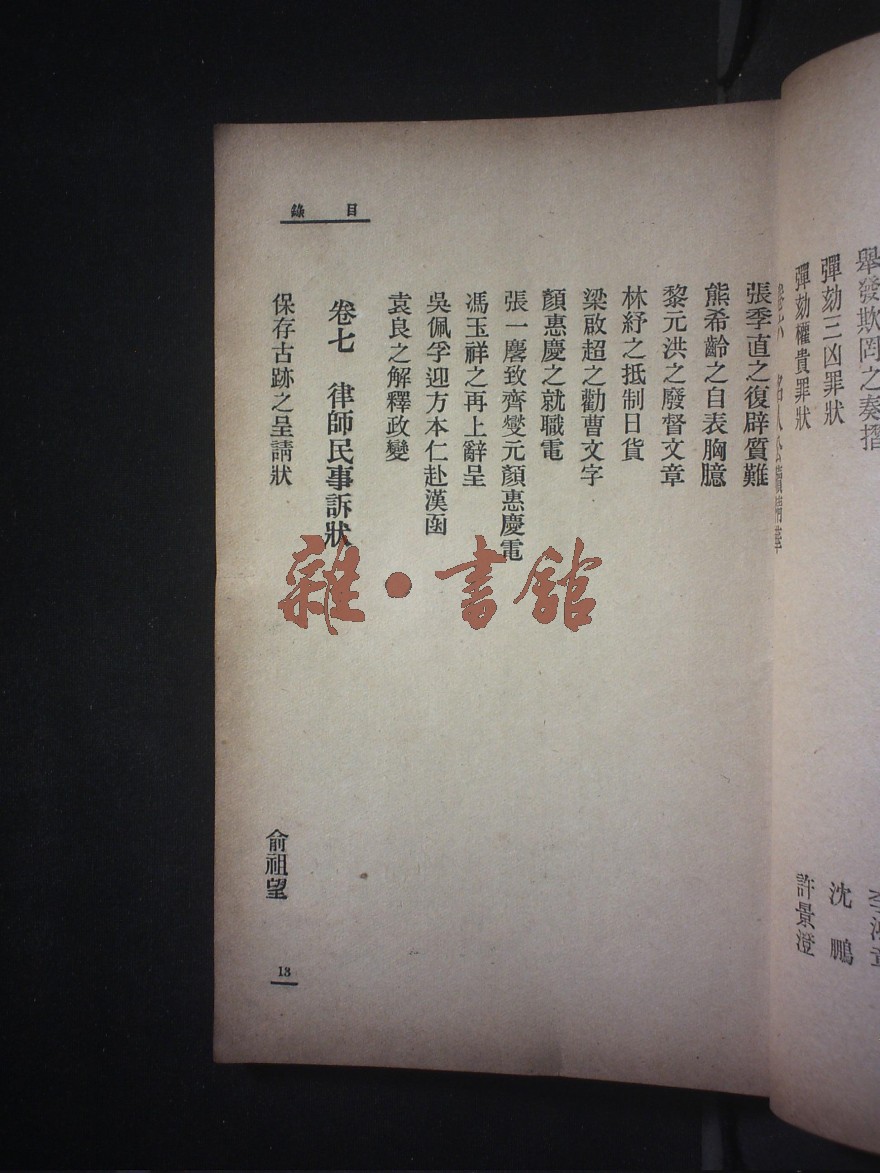 舉發欺罔之奏摺
彈劾三凶罪狀
沈鵬
彈劾權貴罪狀
許景澄
目錄
張季直之復辟質難
熊希齡之自表胸臆
黎元洪之廢督文章
林紓之抵制日貨
梁啟超之勸曹文字
顏惠慶之就職電
張一麐致齊燮元顏惠慶電
馮玉祥之再上辭呈
吳佩孚迎方本仁赴漢函
袁良之解釋政變
卷七 律師民事訴狀
保存古跡之呈請狀
俞祖望
13
雜·書館